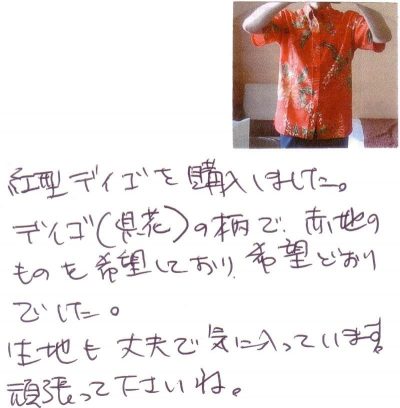 紅型デイゴを購入しました。
デイゴ(県花)の柄で、赤地の
ものを希望しており、希望どおり
でした。
生地も丈夫で気に入っています。
頑張って下さいね。